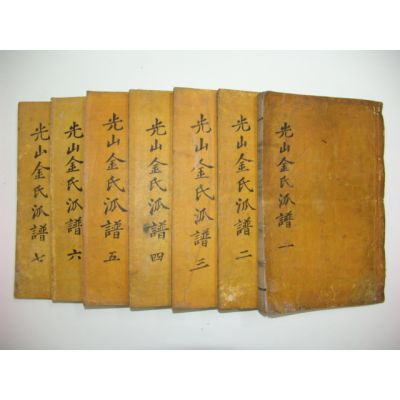 光山金氏派譜 一
光山金氏派譜 二
光山金氏派譜 三
光山金氏派譜 四
光山金氏派譜 五
光山金氏派譜 六
光山金氏派譜 七